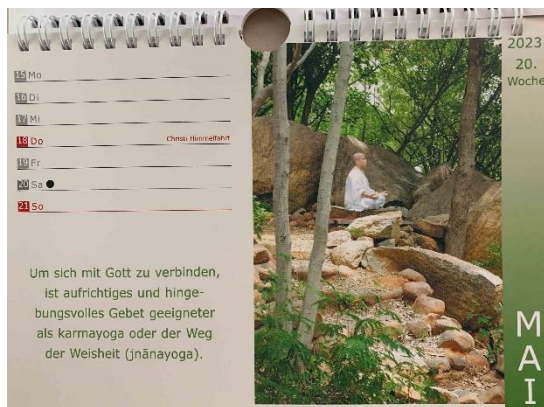 15 Mo
16 Di
17 Mi
18 Do Christi Himmelfahrt
19 Fr
20 Sa
21 So
Um sich mit Gott zu verbinden,
ist aufrichtiges und hinge-
bungsvolles Gebet geeigneter
als karmayoga oder der Weg
der Weisheit (jnānayoga).
2023
20.
Woche
MAI